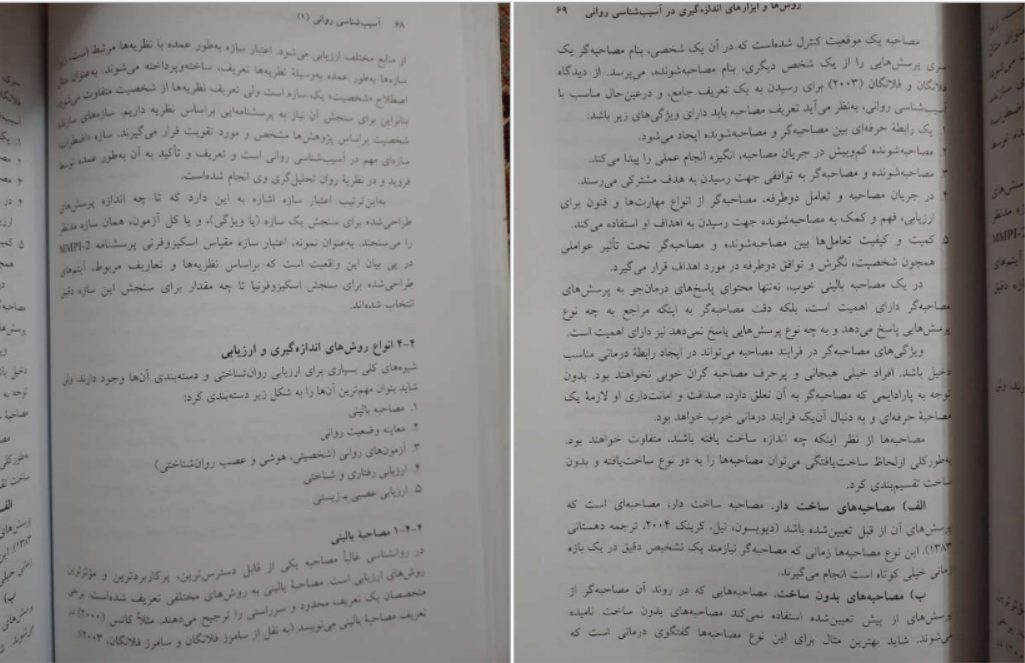 ۶۸ آسیب‌شناسی روانی (۱)
از منابع مختلف ارزیابی می‌شود. اعتبار سازه به‌طور عمده با نظریه‌ها مرتبط است، زیرا
سازه‌ها به‌طور عمده به‌وسیلهٔ نظریه‌ها تعریف، ساخته‌وپرداخته می‌شوند. به‌عنوان مثال
اصطلاح «شخصیت» یک سازه است ولی تعریف نظریه‌ها از شخصیت متفاوت می‌شود
بنابراین برای سنجش آن نیاز به پرسشنامه‌ایی براساس نظریه داریم. سازه‌های سازنده
شخصیت براساس پژوهش‌ها مشخص و مورد تقویت قرار می‌گیرند. سازه «اضطراب»
سازه‌ای مهم در آسیب‌شناسی روانی است و تعریف و تأکید به آن به‌طور عمده توسط
فروید و در نظریهٔ روان تحلیل‌گری وی انجام شده‌است.
به‌این‌ترتیب اعتبار سازه اشاره به این دارد که تا چه اندازه پرسش‌های
طراحی‌شده برای سنجش یک سازه (یا ویژگی)، و یا کل آزمون، همان سازه مدنظر
را می‌سنجند. به‌عنوان نمونه، اعتبار سازه مقیاس اسکیزوفرنی پرسشنامه MMPI-2
در پی بیان این واقعیت است که براساس نظریه‌ها و تعاریف مربوط، آیتم‌های
طراحی‌شده برای سنجش اسکیزوفرنیا تا چه مقدار برای سنجش این سازه دقیق
انتخاب شده‌اند.
۴-۴ انواع روش‌های اندازه‌گیری و ارزیابی
شیوه‌های کلی بسیاری برای ارزیابی روان‌شناختی و دسته‌بندی آن‌ها وجود دارند ولی
شاید بتوان مهم‌ترین آن‌ها را به شکل زیر دسته‌بندی کرد:
۱. مصاحبه بالینی
۲. معاینه وضعیت روانی
۳. آزمون‌های روانی (شخصیتی، هوشی و عصب روان‌شناختی)
۴. ارزیابی رفتاری و شناختی
۵. ارزیابی عصبی ـ زیستی
۴-۴-۱ مصاحبهٔ بالینی
در روانشناسی غالباً مصاحبه یکی از قابل دسترس‌ترین، پرکاربردترین و مؤثرترین
روش‌های ارزیابی است. مصاحبهٔ بالینی به روش‌های مختلفی تعریف شده‌است. برخی
متخصصان یک تعریف محدود و سرراستی را ترجیح می‌دهند. مثلاً کاتس (۲۰۰۰) در
تعریف مصاحبهٔ بالینی می‌نویسد (به نقل از سامرز فلانگان و سامرز فلانگان، ۲۰۰۳):
روش‌ها و ابزارهای اندازه‌گیری در آسیب‌شناسی روانی ۶۹
مصاحبه یک موقعیت کنترل شده‌است که در آن یک شخصی، بنام مصاحبه‌گر یک
سری پرسش‌هایی را از یک شخص دیگری، بنام مصاحبه‌شونده، می‌پرسد. از دیدگاه
فلانگان و فلانگان (۲۰۰۳) برای رسیدن به یک تعریف جامع، و درعین‌حال مناسب با
آسیب‌شناسی روانی، به‌نظر می‌آید تعریف مصاحبه باید دارای ویژگی‌های زیر باشد:
۱. یک رابطهٔ حرفه‌ای بین مصاحبه‌گر و مصاحبه‌شونده ایجاد می‌شود.
۲. مصاحبه‌شونده کم‌وبیش در جریان مصاحبه، انگیزه انجام عملی را پیدا می‌کند.
۳. مصاحبه‌شونده و مصاحبه‌گر به توافقی جهت رسیدن به هدف مشترکی می‌رسند.
۴. در جریان مصاحبه و تعامل دوطرفه، مصاحبه‌گر از انواع مهارت‌ها و فنون برای
ارزیابی، فهم و کمک به مصاحبه‌شونده جهت رسیدن به اهداف او استفاده می‌کند.
۵. کمیت و کیفیت تعامل‌ها بین مصاحبه‌شونده و مصاحبه‌گر تحت تأثیر عواملی
همچون شخصیت، نگرش و توافق دوطرفه در مورد اهداف قرار می‌گیرد.
در یک مصاحبه بالینی خوب، نه‌تنها محتوای پاسخ‌های درمان‌جو به پرسش‌های
مصاحبه‌گر دارای اهمیت است، بلکه دقت مصاحبه‌گر به اینکه مراجع به چه نوع
پرسش‌هایی پاسخ می‌دهد و به چه نوع پرسش‌هایی پاسخ نمی‌دهد نیز دارای اهمیت است.
ویژگی‌های مصاحبه‌گر در فرایند مصاحبه می‌تواند در ایجاد رابطهٔ درمانی مناسب
دخیل باشد. افراد خیلی هیجانی و پرحرف مصاحبه گران خوبی نخواهند بود. بدون
توجه به پارادایمی که مصاحبه‌گر به آن تعلق دارد، صداقت و امانت‌داری او لازمهٔ یک
مصاحبهٔ حرفه‌ای و به دنبال آن‌یک فرایند درمانی خوب خواهد بود.
مصاحبه‌ها از نظر اینکه چه اندازه ساخت یافته باشند، متفاوت خواهند بود.
به‌طورکلی ازلحاظ ساخت‌یافتگی می‌توان مصاحبه‌ها را به دو نوع ساخت‌یافته و بدون
ساخت تقسیم‌بندی کرد.
الف) مصاحبه‌های ساخت دار. مصاحبه ساخت دار، مصاحبه‌ای است که
پرسش‌های آن از قبل تعیین‌شده باشد (دیویسون، نیل، کرینگ ۲۰۰۴، ترجمه دهستانی
۱۳۸۳). این نوع مصاحبه‌ها زمانی که مصاحبه‌گر نیازمند یک تشخیص دقیق در یک بازه
زمانی خیلی کوتاه است انجام می‌گیرند.
ب) مصاحبه‌های بدون ساخت. مصاحبه‌هایی که در روند آن مصاحبه‌گر از
پرسش‌های از پیش تعیین‌شده استفاده نمی‌کند مصاحبه‌های بدون ساخت نامیده
می‌شوند. شاید بهترین مثال برای این نوع مصاحبه‌ها گفتگوی درمانی است که